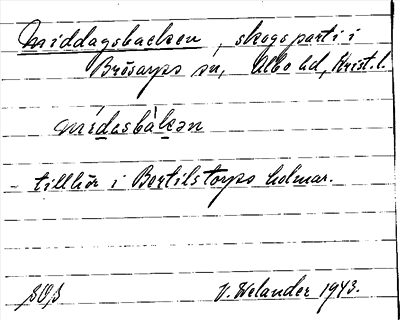 Middagsbacken, skogsparti i
Brösarps sn, Albo hd, Krist. l.
mídasbàkən
- tillhör i Bertilstorps holmar.
V. Welander 1943.